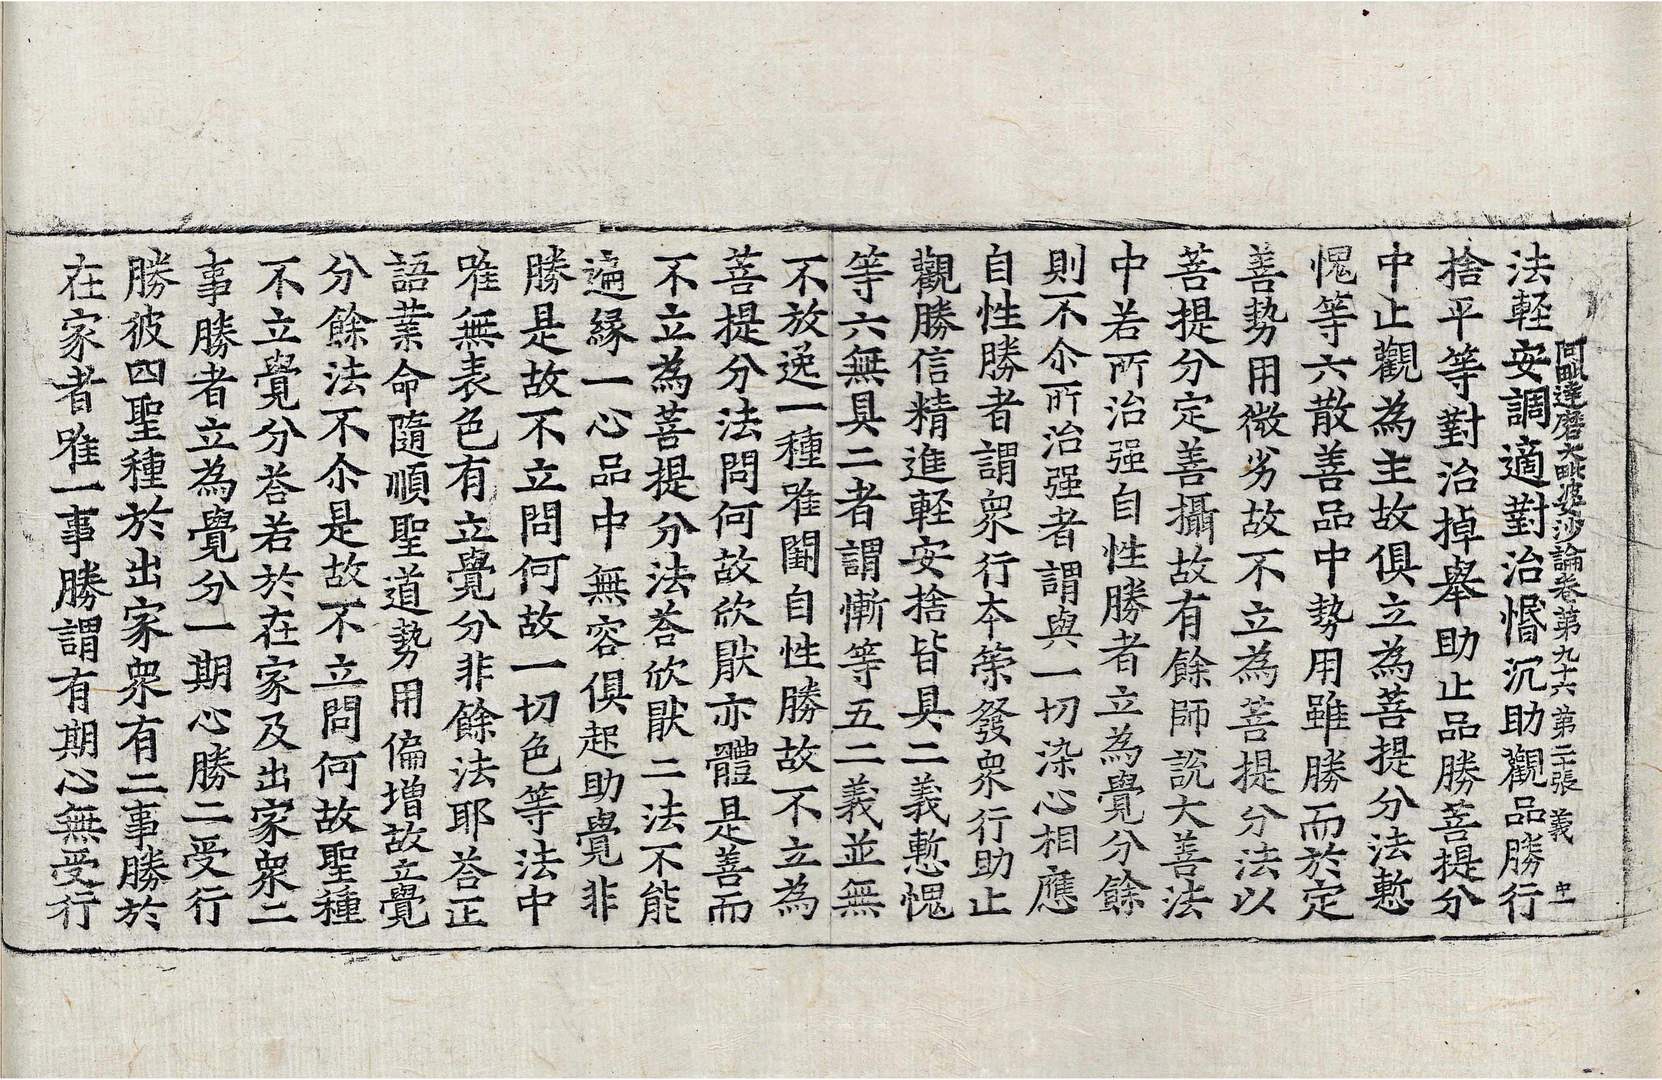 阿毗達磨大毗婆沙論卷第九十六 第二十張 義
法輕安調適對治惛沉助觀品勝行
捨平等對治掉舉助止品勝菩提分
中止觀為主故俱立為菩提分法慙
愧等六散善品中勢用雖勝而於定
善勢用微劣故不立為菩提分法以
菩提分定善攝故有餘師說大善法
中若所治强自性勝者立為覺分餘
則不尒所治强者謂與一切染心相應
自性勝者謂衆行本策發衆行助止
觀勝信精進輕安捨皆具二義慙愧
等六無具二者謂慚等五二義並無
不放逸一種唯闕自性勝故不立為
菩提分法問何故欣猒亦體是善而
不立為菩提分法荅欣猒二法不能
遍緣一心品中無容俱起助覺非
勝是故不立問何故一切色等法中
唯無表色有立覺分非餘法耶荅正
語業命隨順聖道勢用偏增故立覺
分餘法不尒是故不立問何故聖種
不立覺分荅若於在家及出家衆二
事勝者立為覺分一期心勝二受行
勝彼四聖種於出家衆有二事勝於
在家者唯一事勝謂有期心無受行